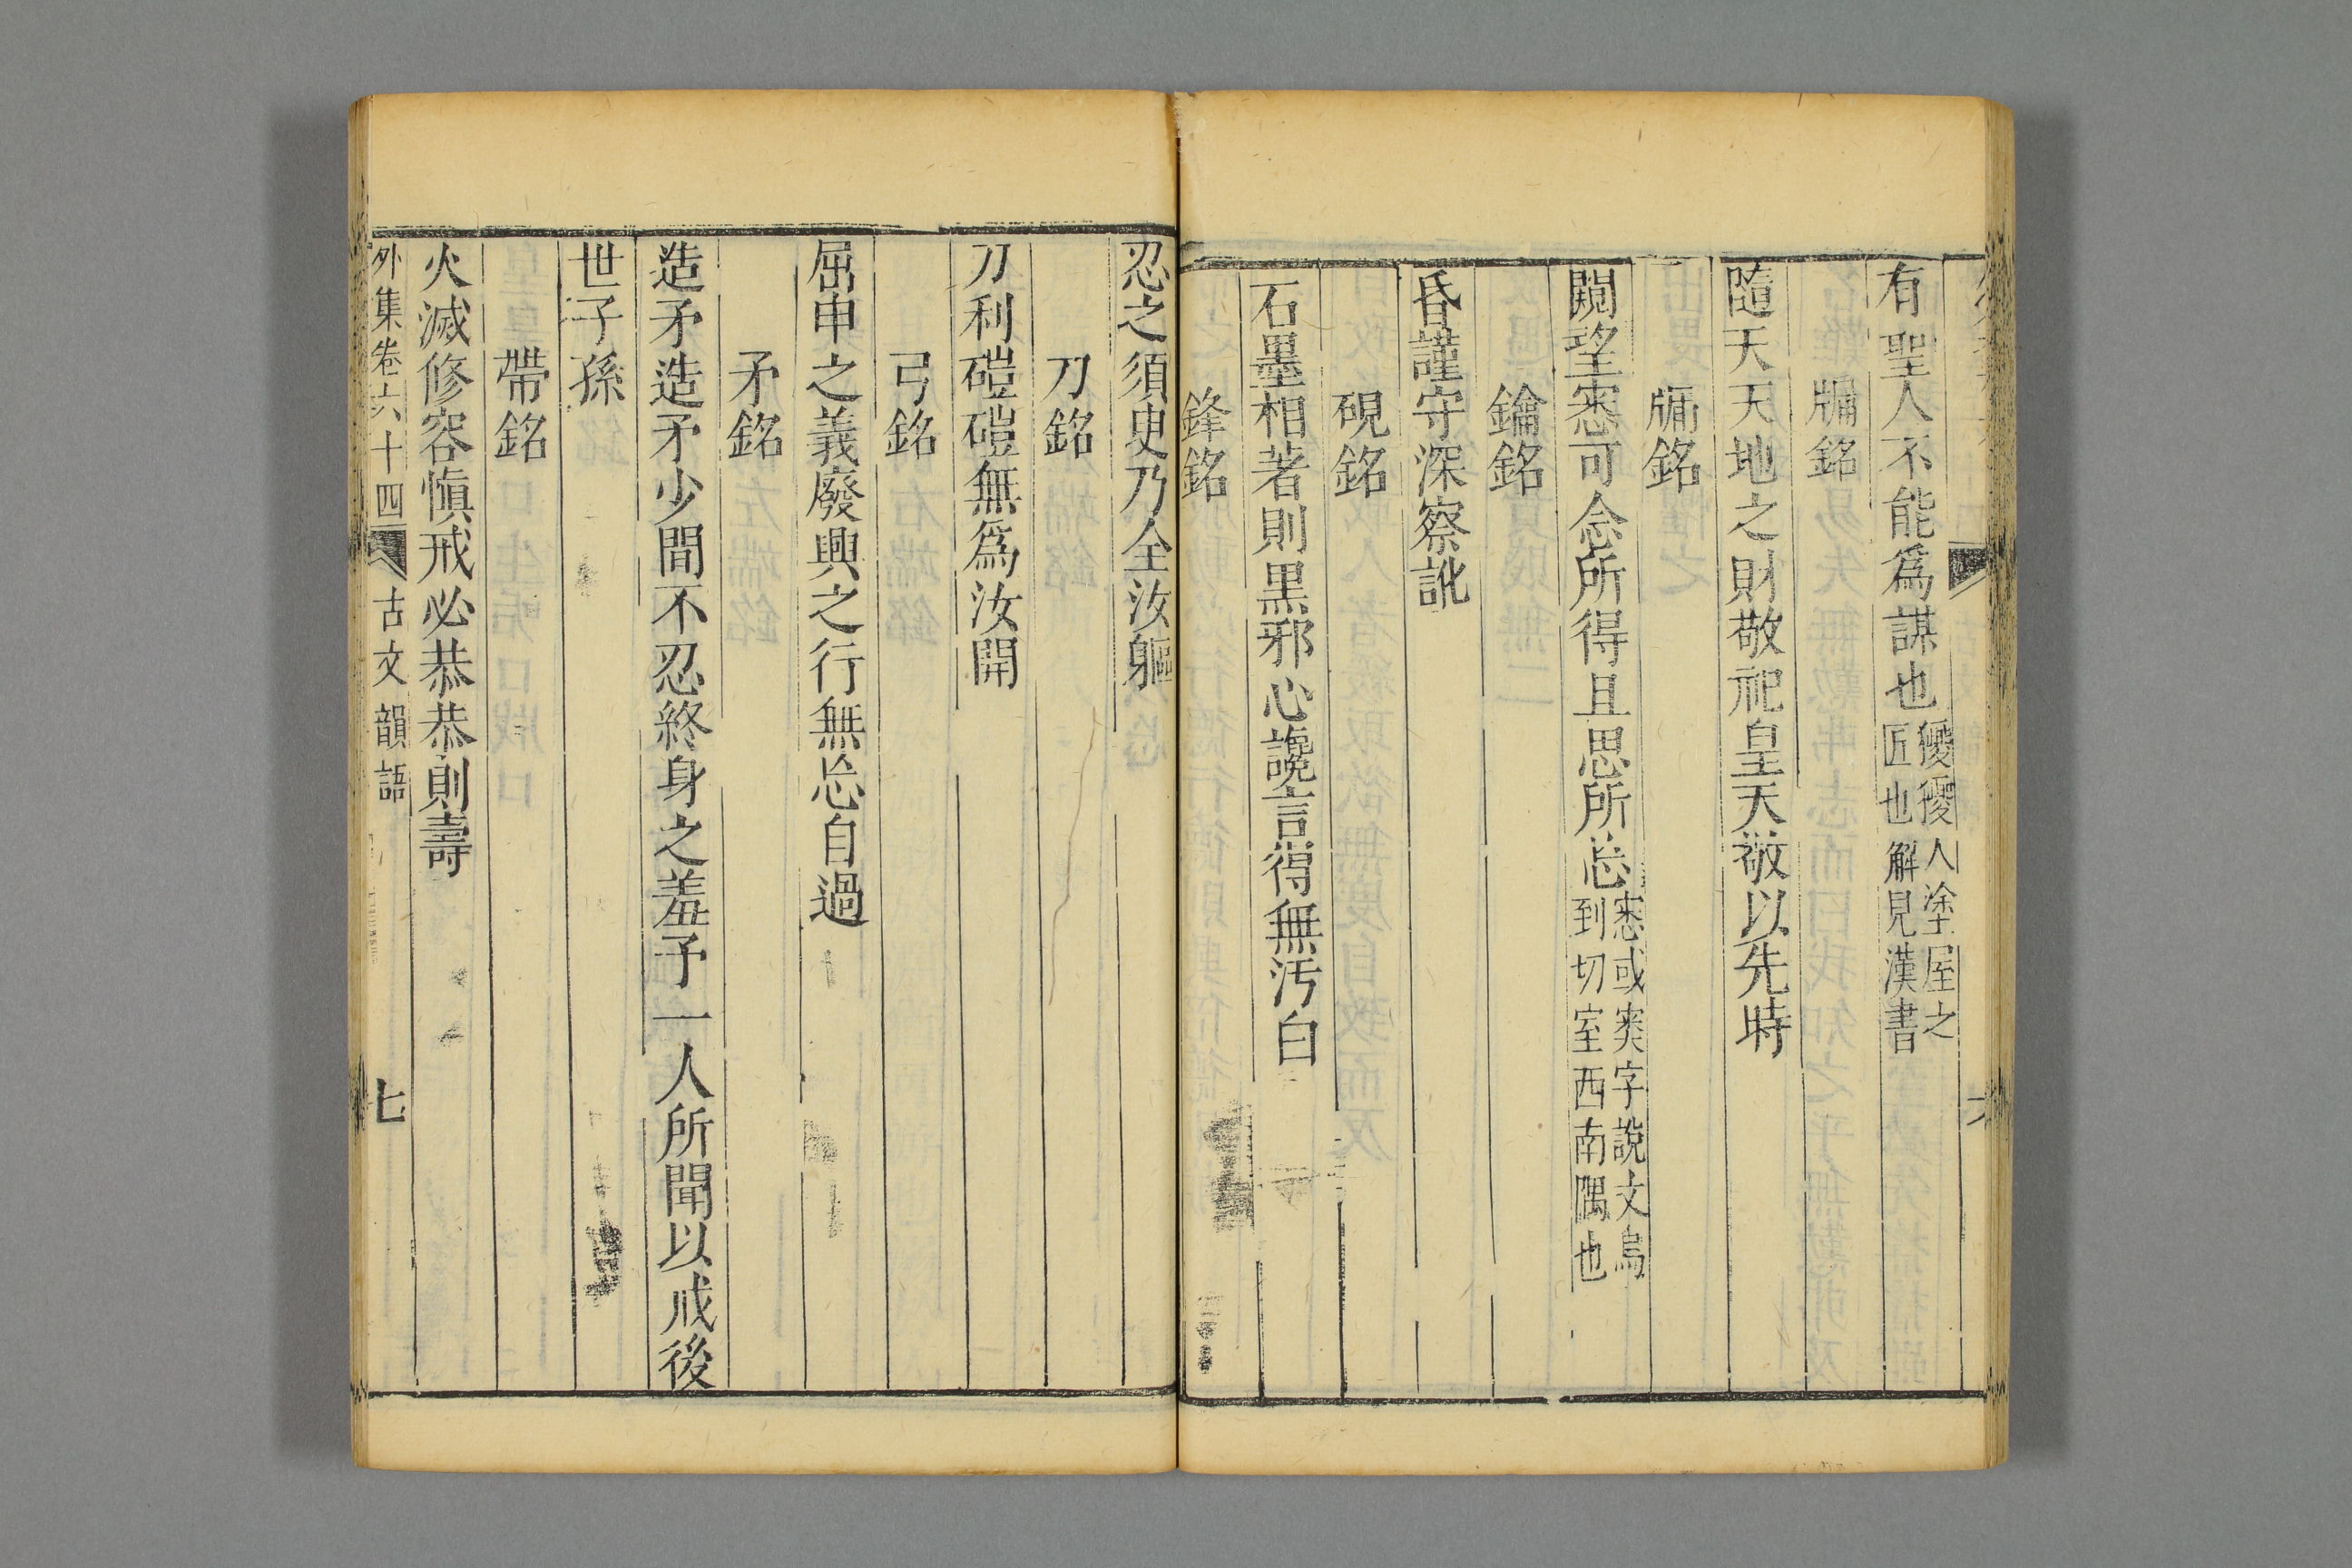 有聖人不能爲謀也獿獿人塗屋之
匠也解見漢書
牖銘
隨天天地之財敬祀皇天敬以先時
牖銘
闚望窓可念所得且思所忘窓或㝔字說文烏
到切室西南隅也
鑰銘
昏謹守深察訛
硯銘
石墨相著則黒邪心讒言得無汚白
鋒銘
忍之須臾乃全汝軀
刀銘
刀利磑磑無爲汝開
弓銘
屈申之義廢興之行無忘自過
矛銘
造矛造矛少間不忍終身之羞予一人所聞以戒後
世子孫
帶銘
火滅修容愼戒必恭恭則壽
外集卷六十四 古文韻語 七